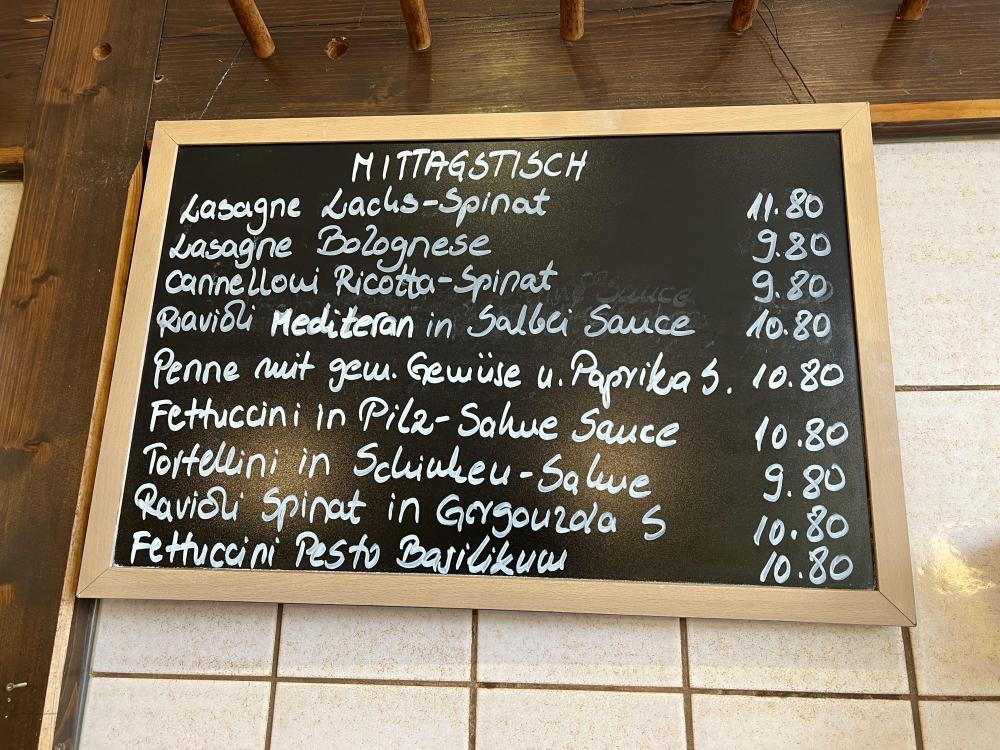 MITTAGSTISCH
Lasagne Lachs-Spinat 11.80
Lasagne Bolognese 9.80
Cannelloni Ricotta-Spinat 9.80
Ravioli Mediteran in Salbei Sauce 10.80
Penne mit gem. Gewüse u. Paprika S. 10.80
Fettuccini in Pilz-Sahne Sauce 10.80
Tortellini in Schinken-Sahne 9.80
Ravioli Spinat in Gorgonzola S 10.80
Fettuccini Pesto Basilikum 10.80